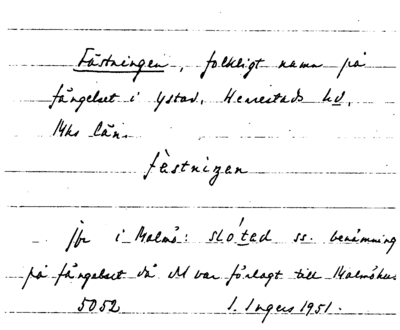 Fästningen, folkligt namn på
fängelset i Ystad, Herrestads hd,
Mhs län.
fèstnigen
Jfr i Malmö: slóted ss. benämning
på fängelset då det var förlagt till Malmöhus
5052 I. Ingers 1951.